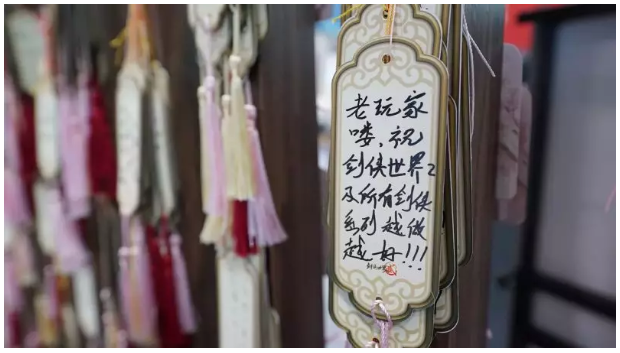 老玩家
喽，祝
剑侠世界2
及所有剑侠
系列越做
越好!!!